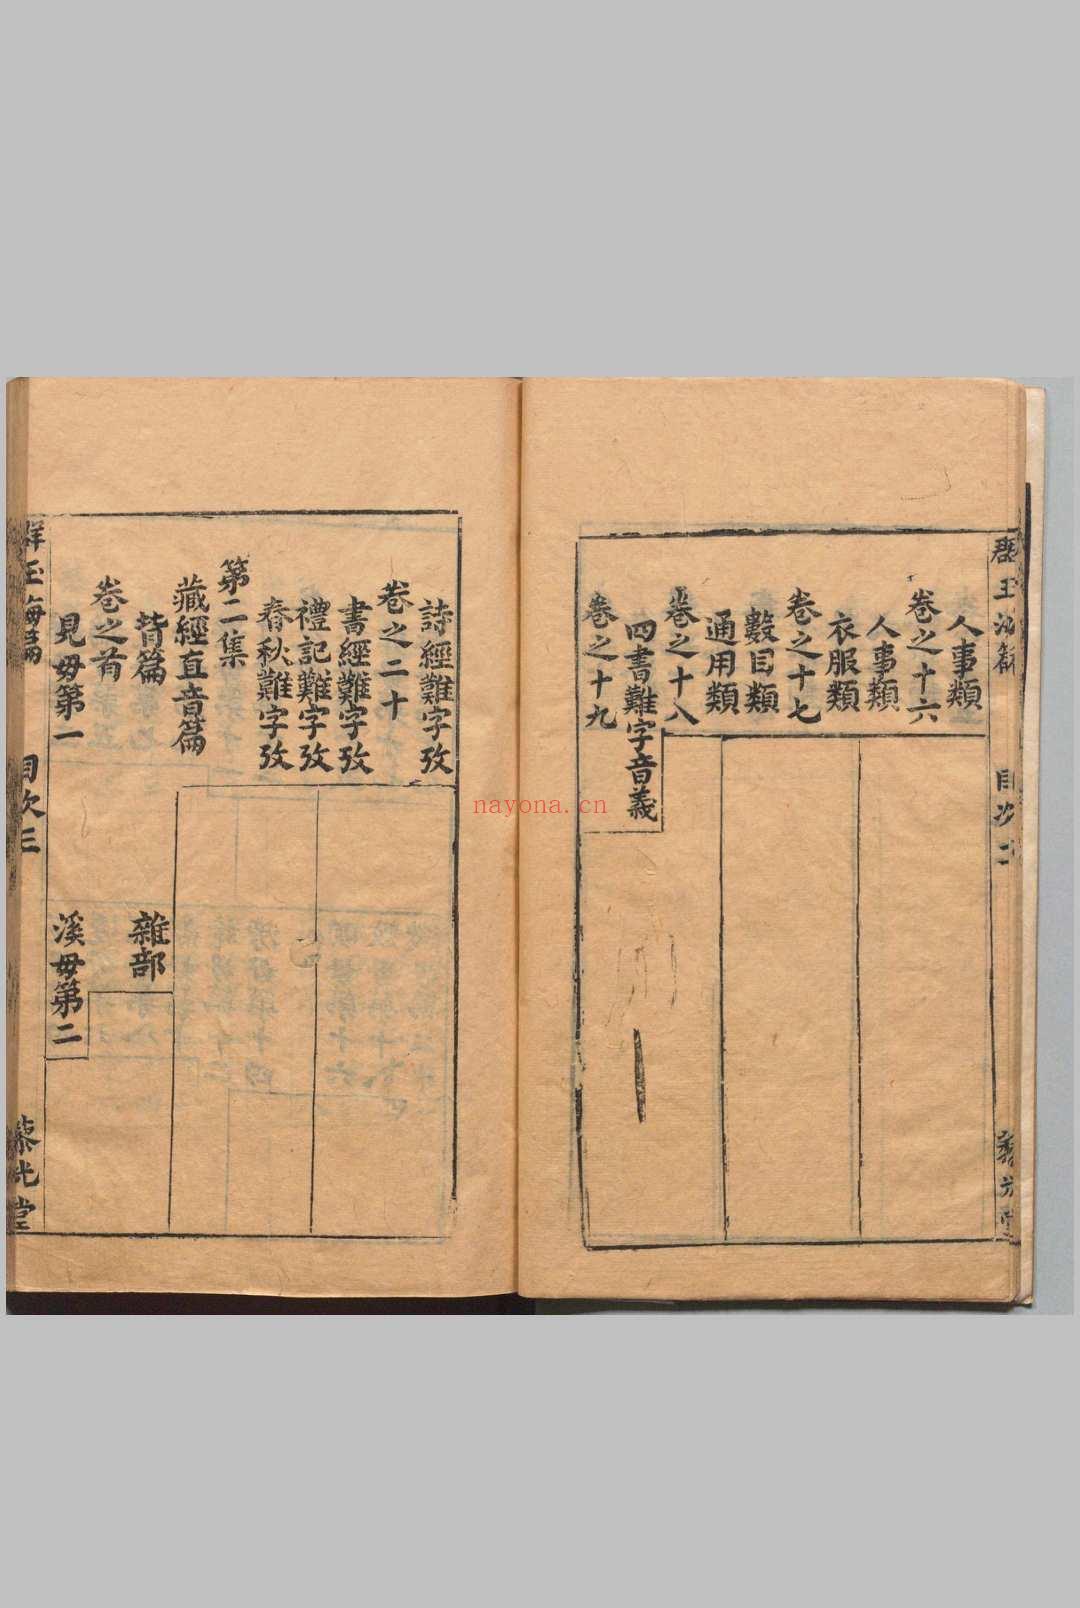 人事類
卷之十六
人事類
衣服類
卷之十七
數目類
通用類
卷之十八
四書難字音義
卷之十九
目次二
詩經難字攷
卷之二十
書經難字攷
禮記難字攷
春秋難字攷
第二集
藏經直音篇
皆篇 雜部
卷之首
見毋第一 溪毋第二
玉海篇 目次三 光堂
nayona.cn